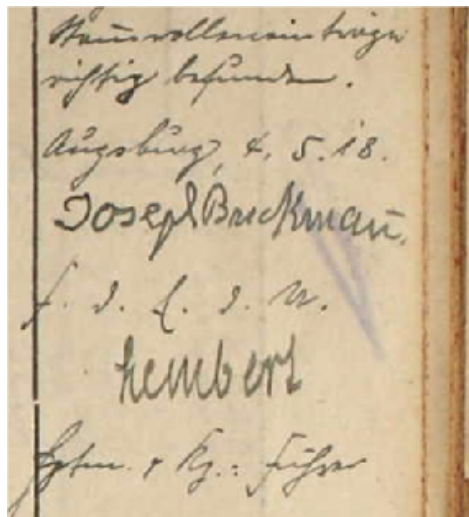 Stammrolleneinträge
richtig befunden.
Augsburg, 4. 5. 18.
Joseph Bruckmann.
f. d. R. d. U.
Lembert
Hptm. & Kp.: Führer